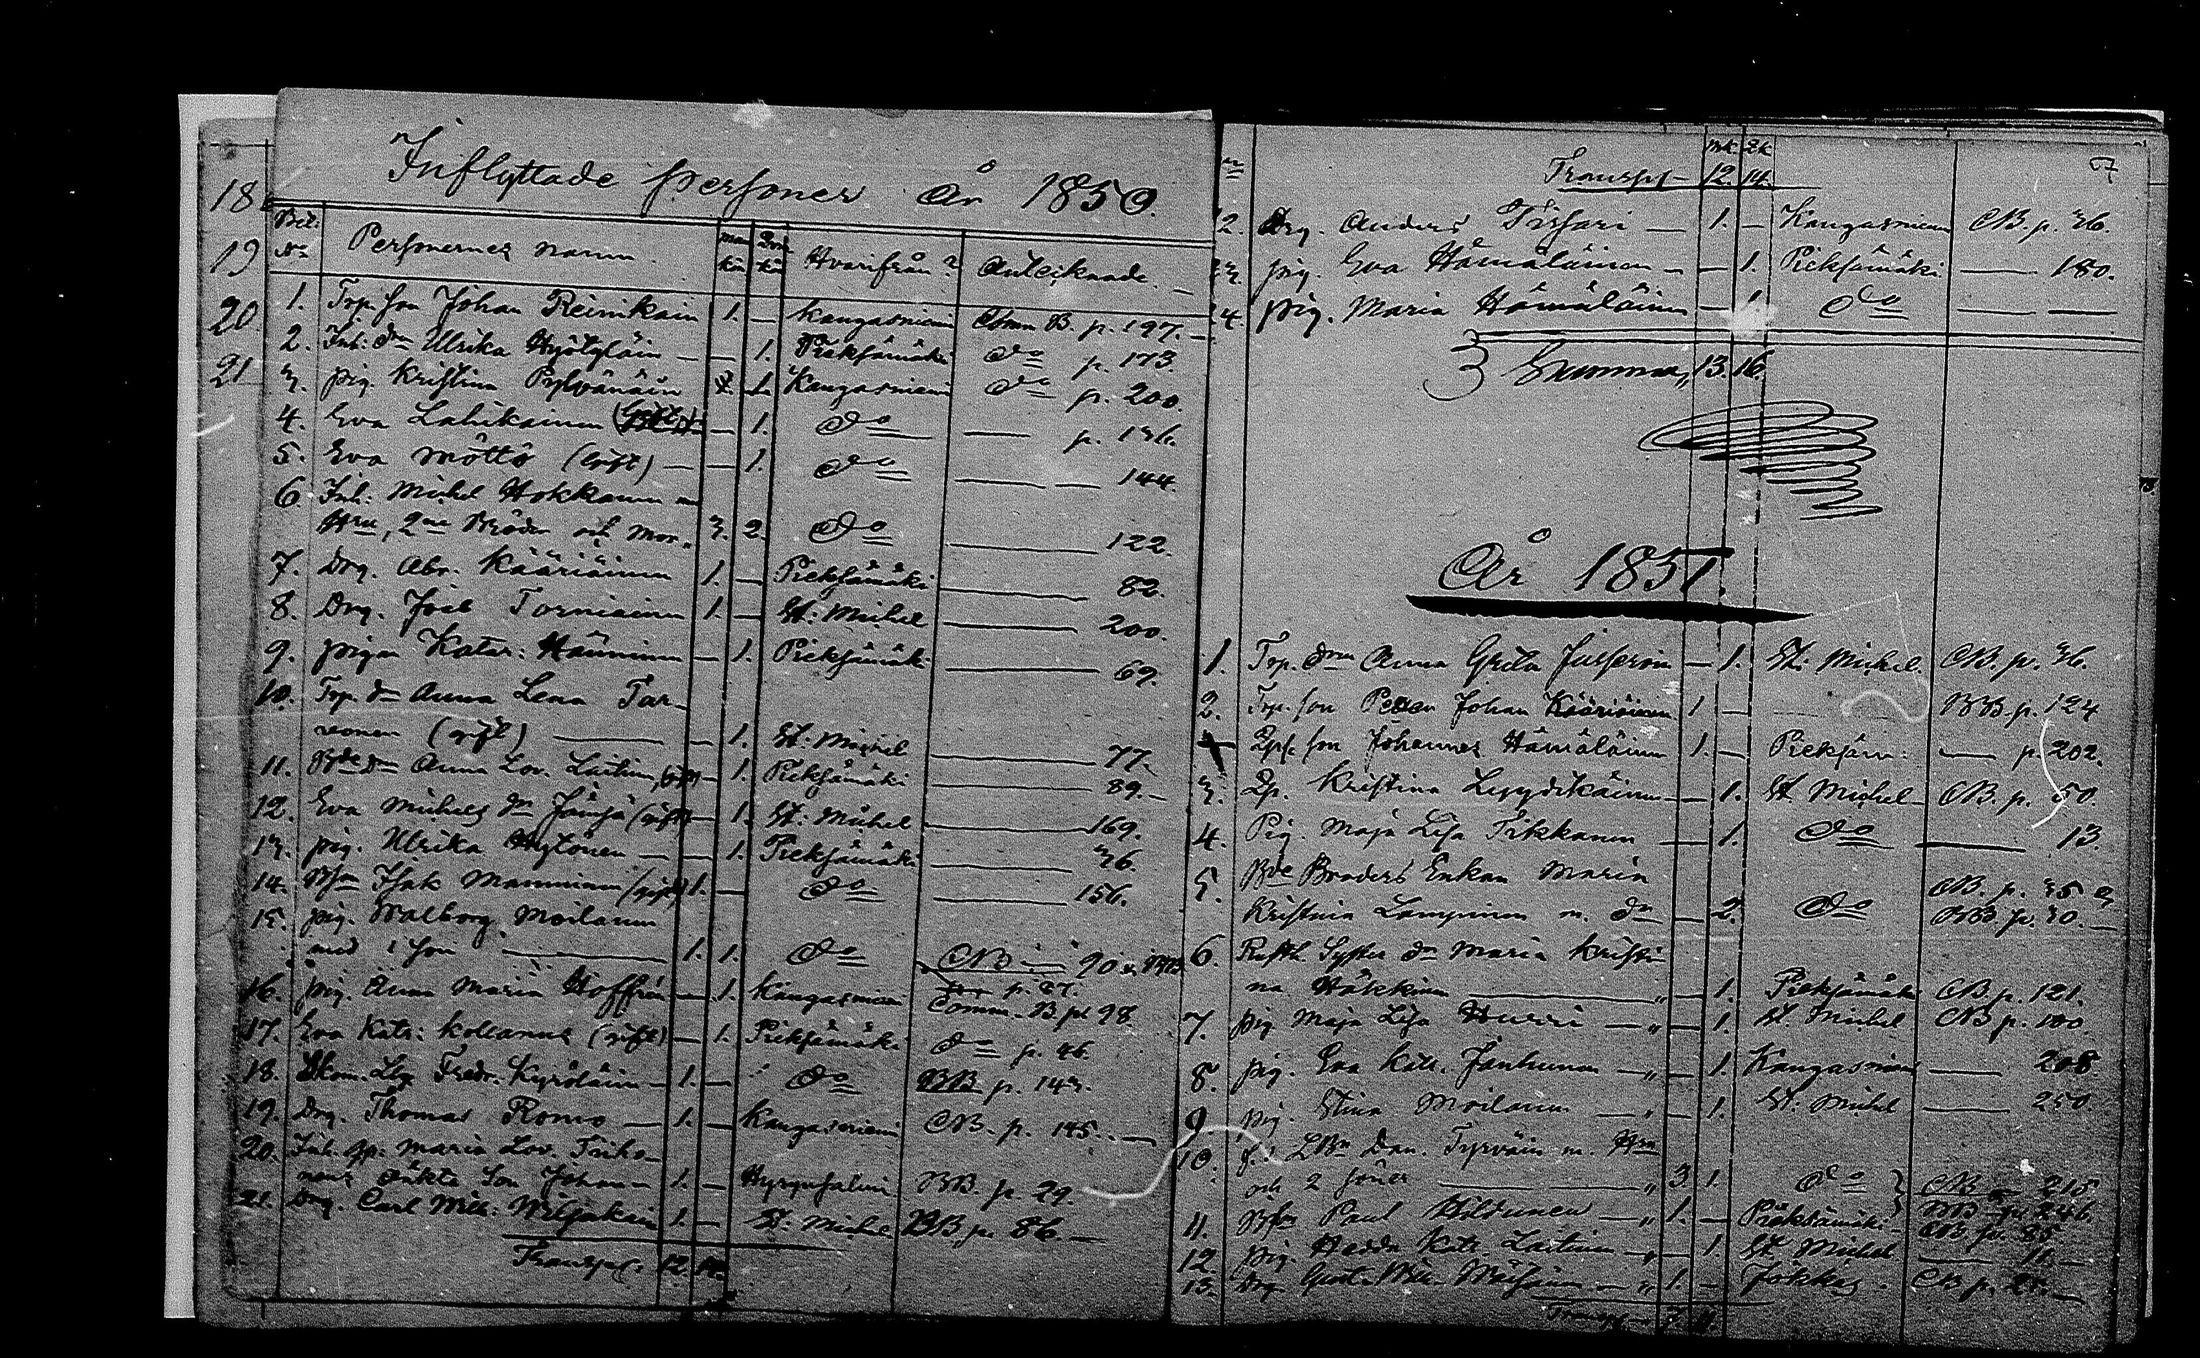 Inflyttade personer År 1850.
Bil. No Personernes namn. man kön Qvin kön Hvarifrån? Antecknade.
1. Trp. son Johan Reinikain 1. — Kangasniemi Comm. B. p. 197.
2. Inh: dr Ulrika — 1. Pieksämäki do p. 173.
3. pig. Kristina Pylvänäin 1. Kangasniemi do p. 200.
4. Eva Lahikainen — 1. do — p. 136.
5. Eva Möttö (gift) — — 1. do — — 144.
6. Inh: Michel Hokkanen m
Hru, 2ne Bröder och Mor. 3. 2. do — 122.
7. Drg. Abr: Kääriäinen 1. — Pieksämäki — 82.
8. Drg. Joel Torniainen 1. — St: Michel — 200.
9. pigan Katar: Hänninen — 1. Pieksämäki — 69.
10. Trp. dr Anna Lena Tar-
vonen (gift) — — 1. St: Michel — 77.
11. Bde dr Anna Lov. Laitinen, gift — 1. Pieksämäki — 89. —
12. Eva Michels dr Jämsä (gift) — 1. St: Michel — 169.
13. pig. Ulrika Hytönen — — 1. Pieksämäki — 36.
14. Bson Isak Manninen (gift) 1. — do — 156.
15. pig. Walborg Moilanen
med 1 son — 1. 1. do CB — 90 &
p. 67.
16. pig. Anna Maria Hoffrén — 1. Kangasniemi Comm. B p. 98.
17. Eva Katr: Kollanus (gift) — 1. Pieksämäki do p. 46.
18. Fredr. Kyröläinen — 1. — do BB p. 143.
19. Drg. Thomas Romo — 1. — Kangasniemi CB. p. 145. —
20. Inh. Maria Lov. Friho-
nens oäkta Son Johan — 1. — Hyrynsalmi BB. p. 29.
21. Drg. Carl Wilh: Wiljakain 1. — St: Michel BB p. 86. —
Transp. 12. 14.
18
19
20
21
67
mk qk
Transp — 12. 14.
22. Drg. Anders Tissari — 1. — Kangasniemi CB. p. 36.
23. pig. Eva Hämäläinen — — 1. Pieksämäki — 180.
24. pig. Maria Hämäläinen — 1. do — —
Summa, 13. 16.
År 1851.
1. Trp. dr Anna Greta — 1. St: Michel. CB. p. 36.
2. Trp. son Petter Johan Kääriäinen 1 — BB p. 124
son Johannes Hämäläinen 1. — Pieksäm: — p. 202.
3. Kristina Lyydikäinen — 1. St. Michel — CB. p. 50.
4. Pig. Maja Lisa Tikkanen — 1. do — 13.
5. Bde Broders Enkan Maria CB. p. 35 &
Kristina Lampinen m. dr — 2. do BB p. 30. —
6. Syster dr Maria Kristi-
na Häkkinen — 1. Pieksämäki CB p. 121.
7. pig Maja Lisa Hurri — 1. St. Michel CB p. 100.
8. pig. Eva Katr. Janhunen — 1. Kangasniemi — 208
9. pig. Stina Moilanen — 1. St. Michel — 250.
10. f. d. LBn Dan. Tyrväin m. Hru
och 2 söner — 3 1. do CB — 215
BB p. 246.
11. Bson Paul Hiltunen — 1. — Pieksämäki CB p. 85
12. pig. Hedda Katr. Laitinen — 1. St. Michel — 11. —
13. Drg Gust. Wilh. — 1. — Jokkas. CB p.
Transp. 7. 11.